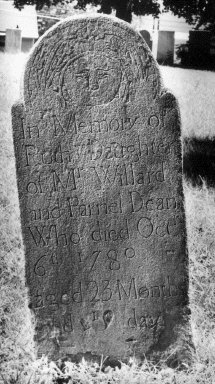 In Memory of
Daughter
of Mr Willard
and Parnel Dean
Who died Oct
6th 1780
aged 23 Month
and days